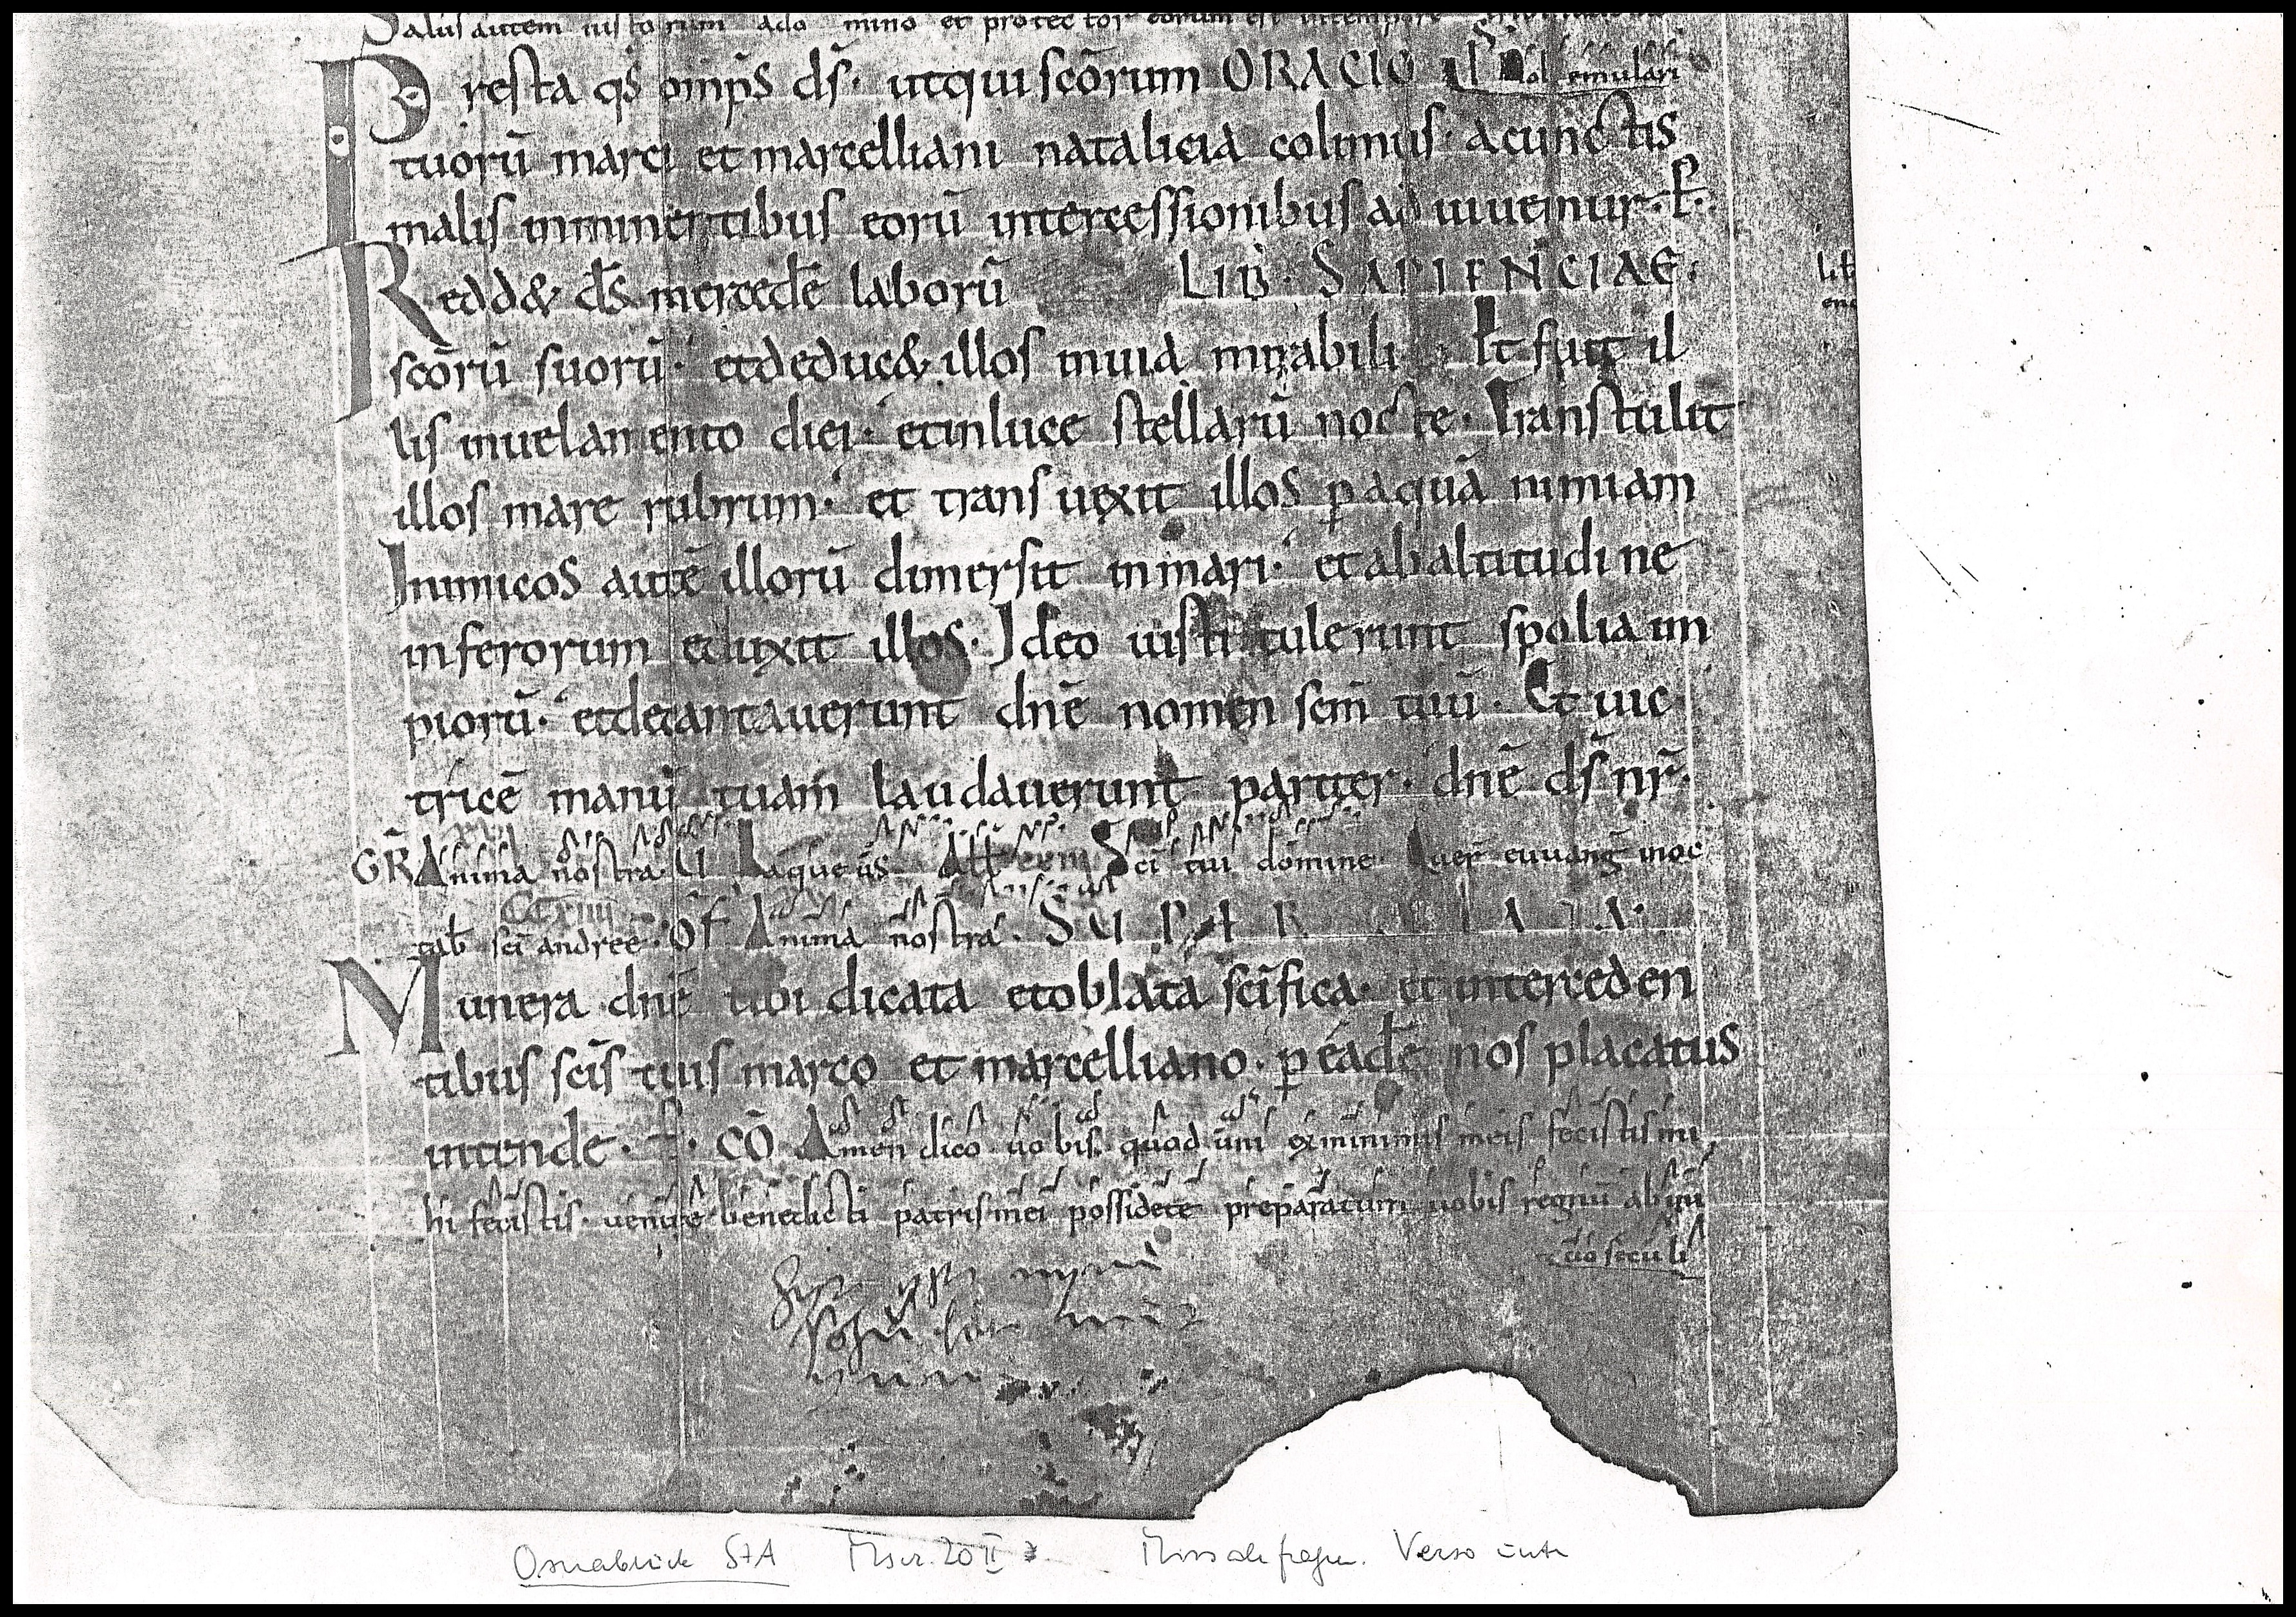 Salus autem iustorum ado mino et protector eorum est
Presta qs omps ds· utqui scōrum ORACIO ps Nol emulari
tuorū marci et marcelliani natalicia colimus· acunctis
malis imminentibus eorū intercessionibus ad iuuemur· p̄·
Redd& ds mercedē laborū LIB· SAPIENCIAE·
scōrū suorū· etdeduc& illos inuia mirabili· Et fuit il
lis inuelamento diei· etinluce stellarū nocte· Transtulit
illos mare rubrum· et trans uexit illos p aquā nimiam
Inimicos autē illorū dimersit inmari· etabaltitudine
inferorum eduxit illos· Ideo iusti tulerunt spolia im
piorū· etdecantauerunt dnē nomen scm̄ tuū· Et uic
tricē manū tuam laudauerunt pariter· dnē ds nr̄·
GR Anima nostra· U Laqueus Sci tui domine euuang
sci andree· Of Anima nostra· SUPER
Munera dnē tibi dicata etoblata scīfica· et interceden
tibus scīs tuis marco et marcelliano· p eadē nos placatus
intende· CŌ Amen dico uobis· quod uni exminimis meis fecistis mi
hi fecistis· uenite benedicti patrismei possidete preparatum uobis regnū abini
cio seculi
Osnabrück StA Mscr. 20 II Missale fragm. Verso unten